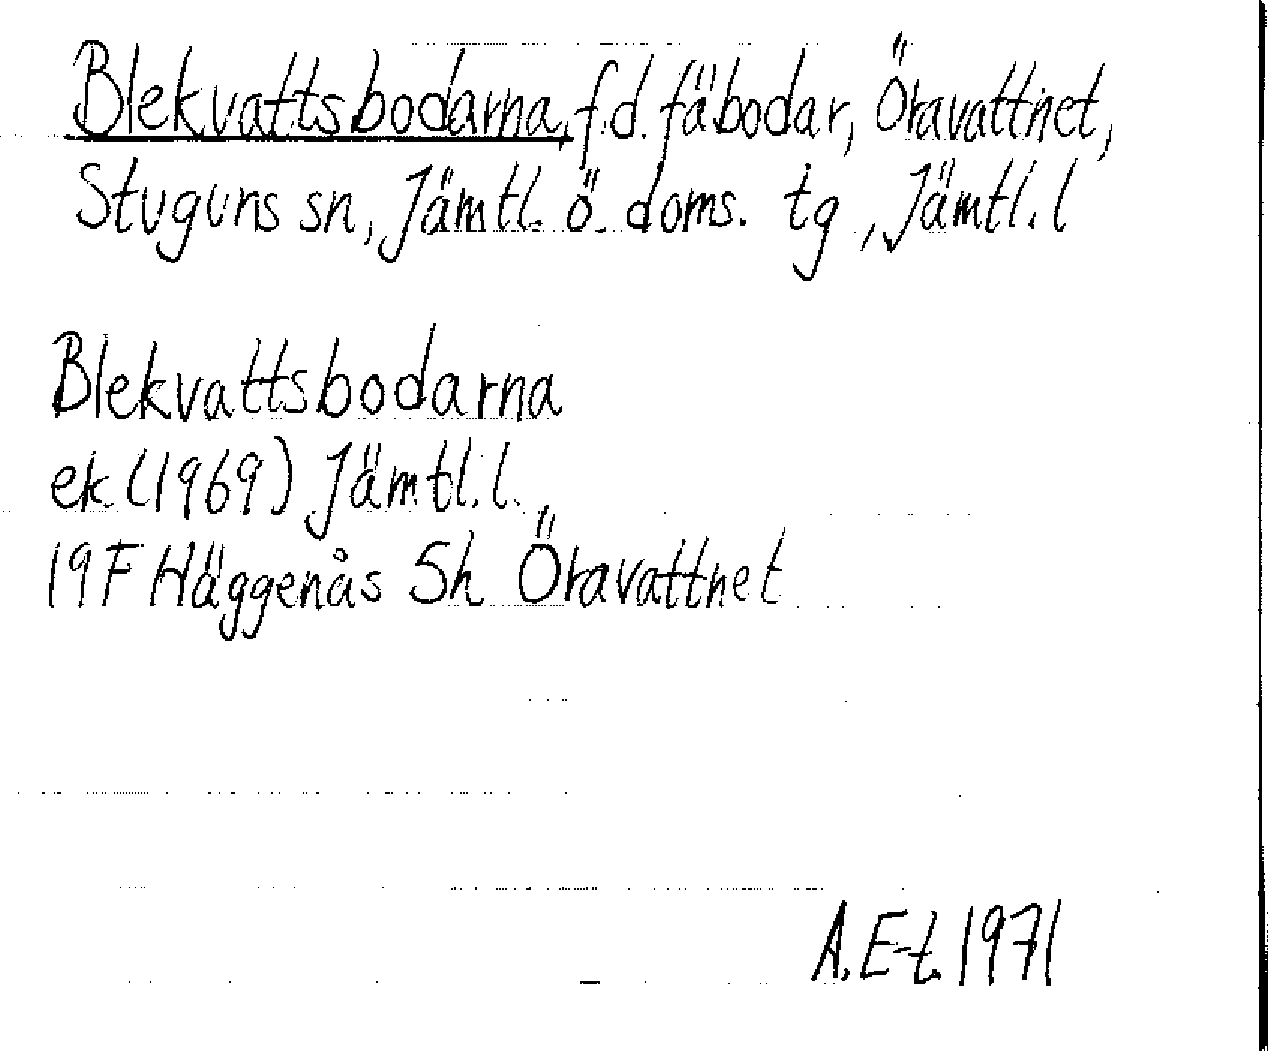 Blekvattsbodarna, f.d. fäbodar, Öravattnet,
Stuguns sn, Jämtl. ö. doms. tg, Jämtl. l
Blekvattsbodarna
ek (1969) Jämtl. l.
19F Häggenås 5h Öravattnet
A. E-t. 1971